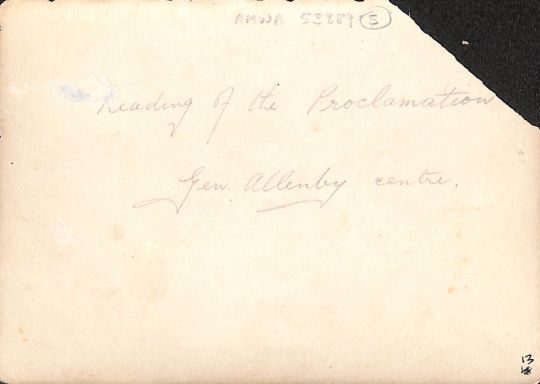 AMWA 53289 5
Reading of the Proclamation
Gen. Allenby centre.
13